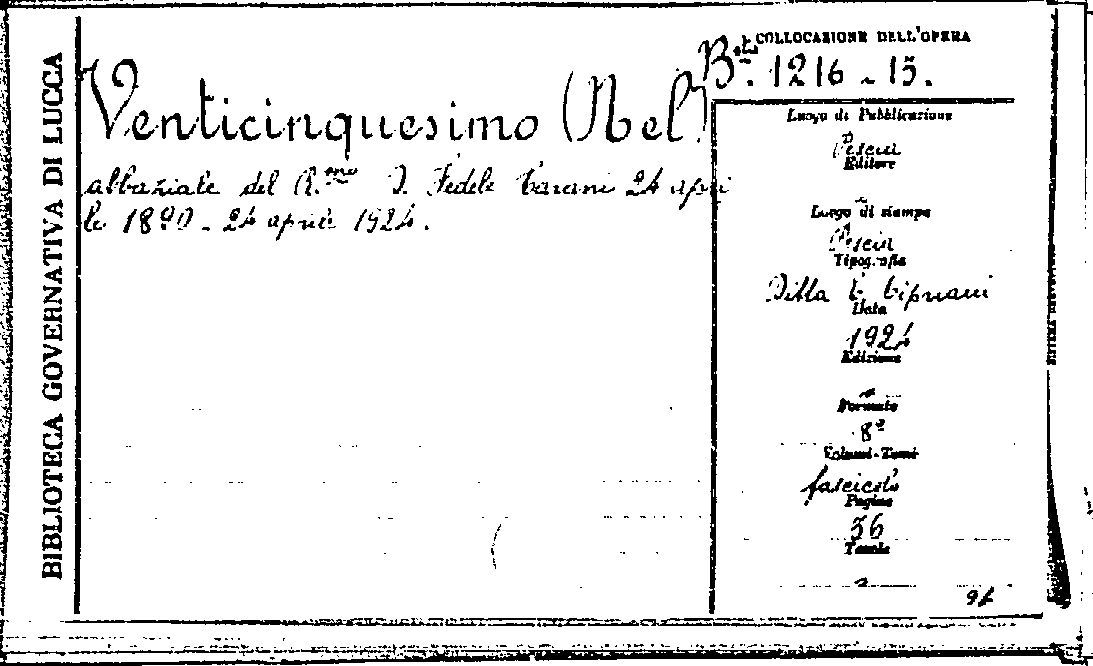 BIBLIOTECA GOVERNATIVA DI LUCCA
COLLOCAZIONE DELL'OPERA
1216 - 15.
Venticinquesimo (Nel)
abbaziale del R.mo D. Fedele Tarani 24 apri
le 1890 - 24 aprile 1924.
Luogo di Pubblicazione
Pescia
Editore
Luogo di stampa
Pescia
Tipografia
Ditta E. Cipriani
Data
1924
Edizione
Formato
8º
Volumi-Tomi
fascicolo
Pagine
36
Tavole